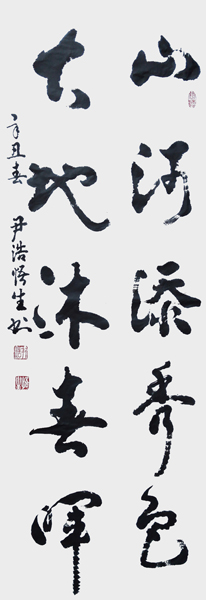 山河添秀色
大地沐春晖
辛丑春 尹浩悟生书